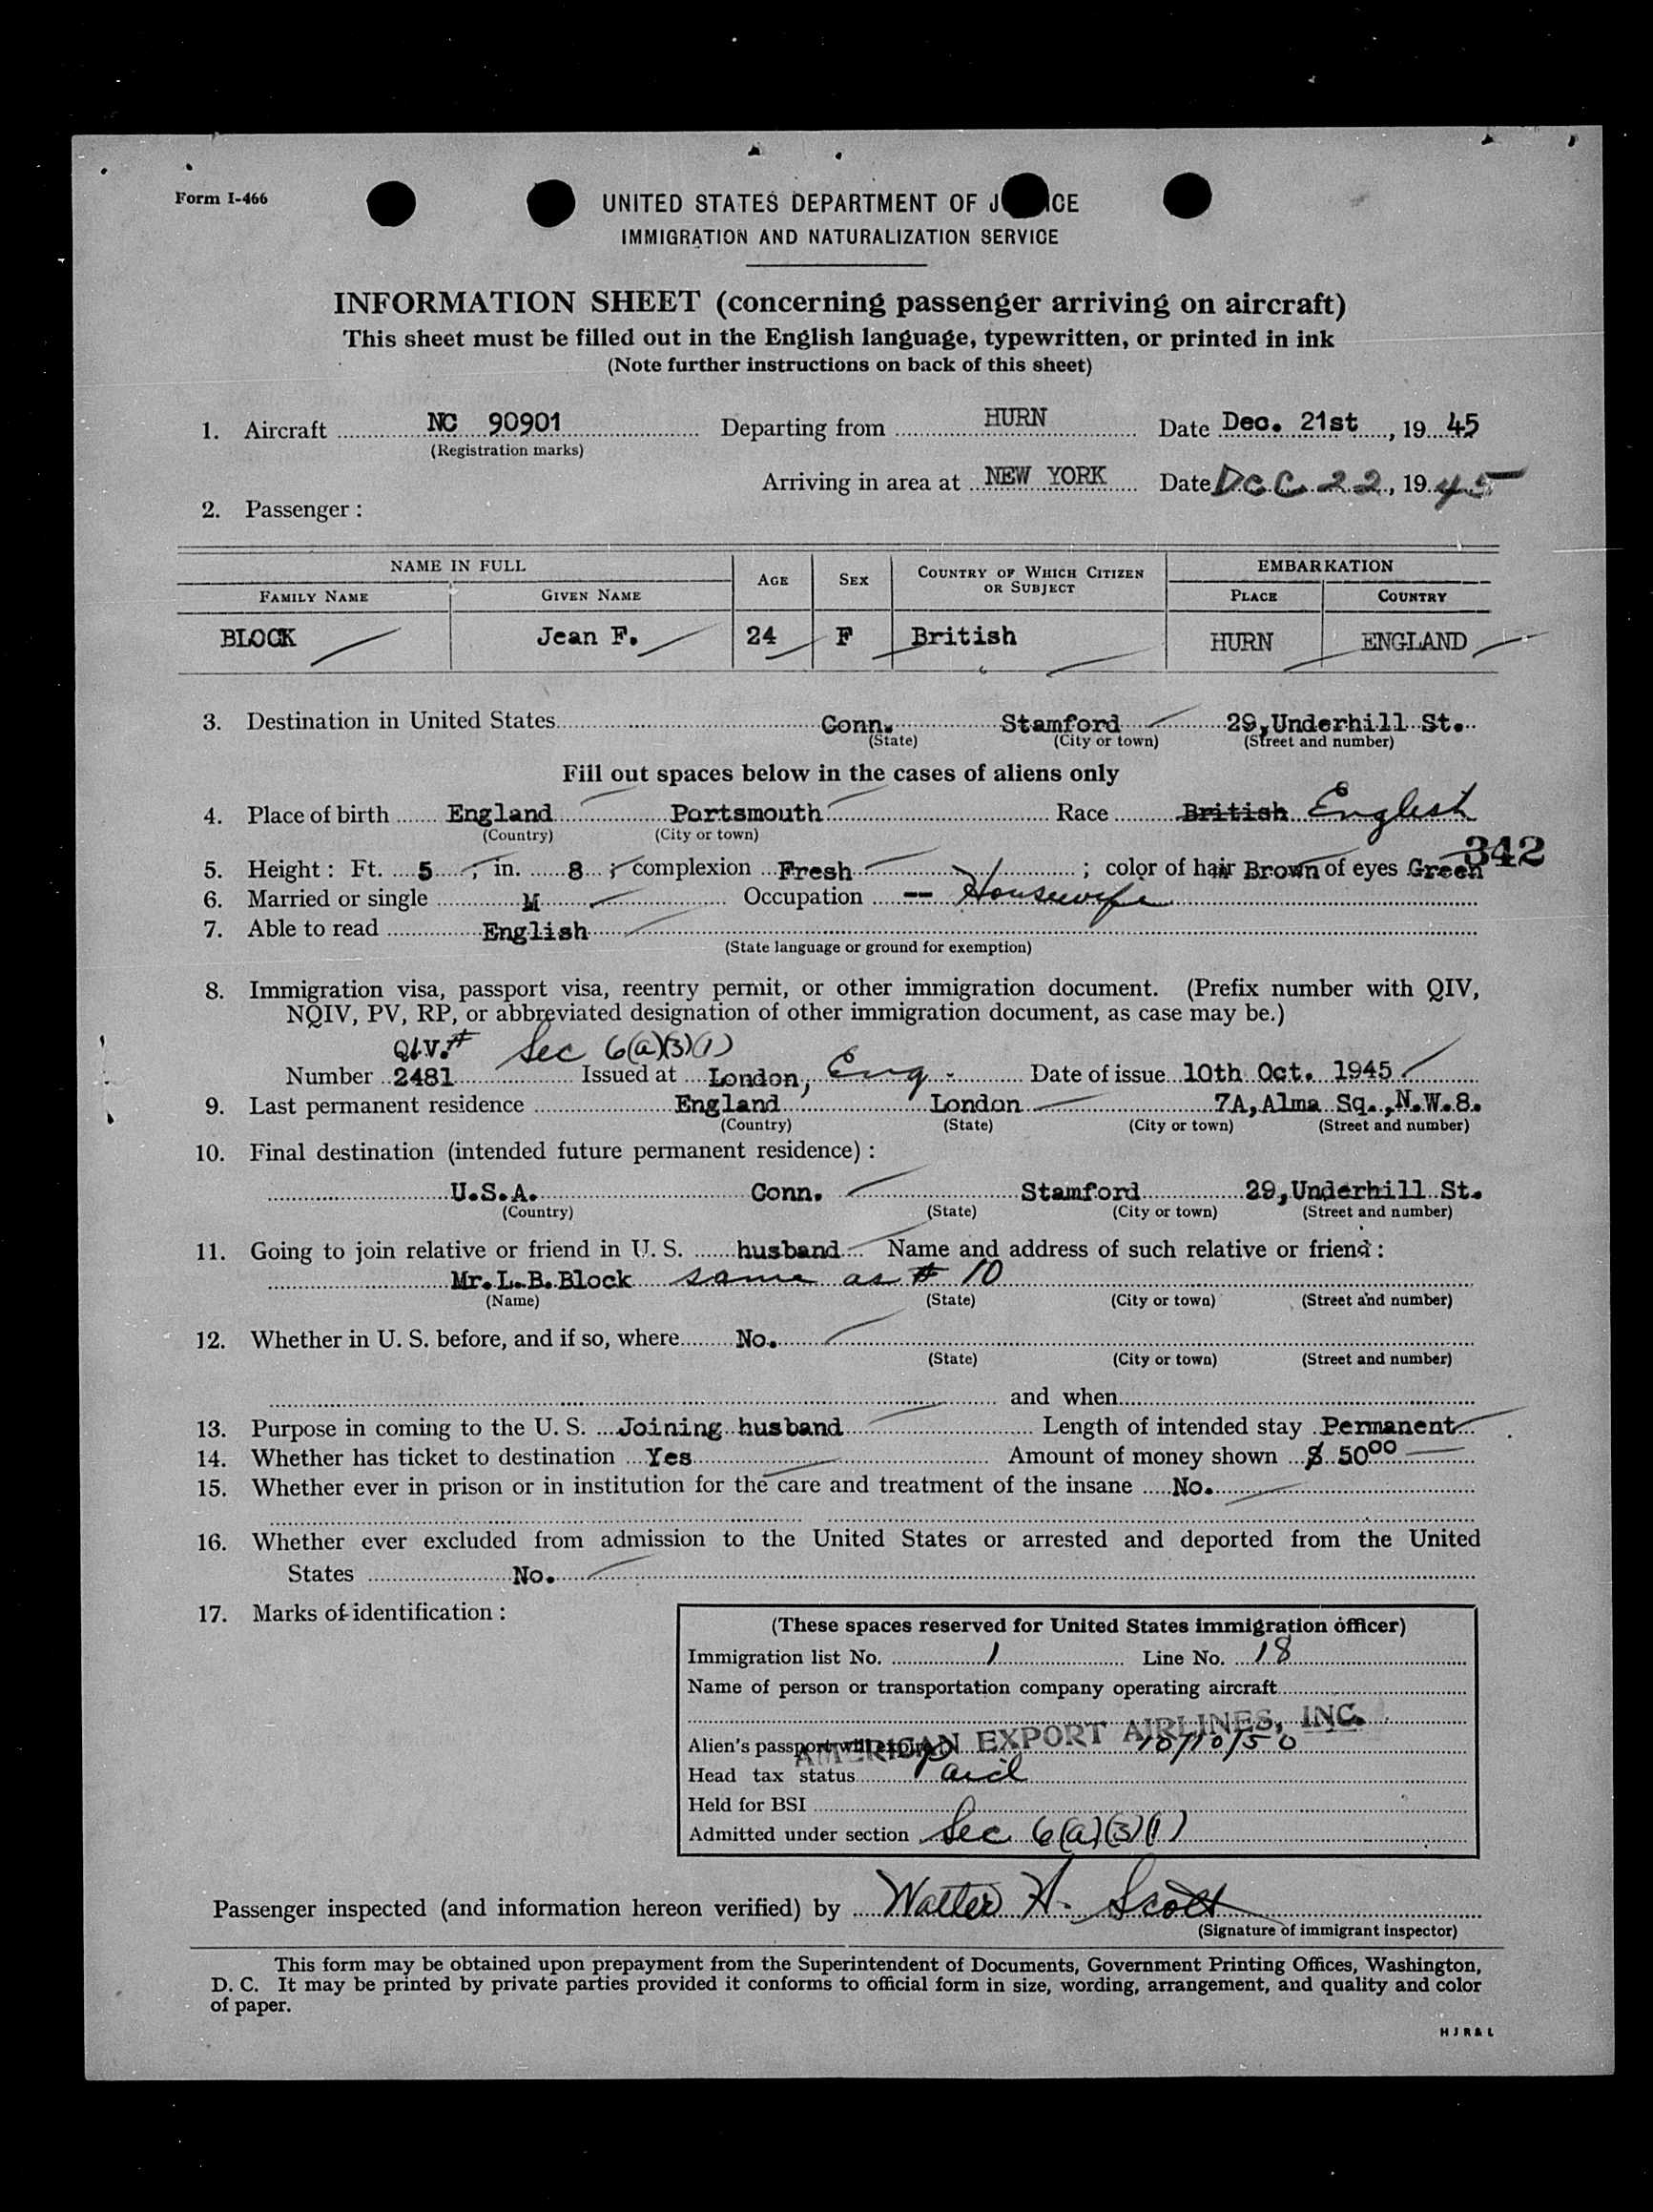 Form I-466
UNITED STATES DEPARTMENT OF J ICE
IMMIGRATION AND NATURALIZATION SERVICE
INFORMATION SHEET (concerning passenger arriving on aircraft)
This sheet must be filled out in the English language, typewritten, or printed in ink
(Note further instructions on back of this sheet)
1. Aircraft NC 90901 Departing from HURN Date Dec. 21st, 19 45
(Registration marks)
Arriving in area at NEW YORK Date Dec 22, 19 45
2. Passenger :
NAME IN FULL AGE SEX COUNTRY OF WHICH CITIZEN OR SUBJECT EMBARKATION
FAMILY NAME GIVEN NAME PLACE COUNTRY
BLOCK Jean F. 24 F British HURN ENGLAND
3. Destination in United States Conn. Stamford 29, Underhill St.
(State) (City or town) (Street and number)
Fill out spaces below in the cases of aliens only
4. Place of birth England Portsmouth Race British English
(Country) (City or town)
342
5. Height : Ft. 5 ; in. 8 ; complexion Fresh ; color of hair Brown of eyes Green
6. Married or single M Occupation -- Housewife
7. Able to read English
(State language or ground for exemption)
8. Immigration visa, passport visa, reentry permit, or other immigration document. (Prefix number with QIV,
NQIV, PV, RP, or abbreviated designation of other immigration document, as case may be.)
Q.I.V.# Sec 6(a)(3)(1)
Number 2481 Issued at London, Eng. Date of issue 10th Oct. 1945
9. Last permanent residence England London 7A, Alma Sq., N.W.8.
(Country) (State) (City or town) (Street and number)
10. Final destination (intended future permanent residence) :
U.S.A. Conn. Stamford 29, Underhill St.
(Country) (State) (City or town) (Street and number)
11. Going to join relative or friend in U. S. husband Name and address of such relative or friend :
Mr. L. B. Block same as # 10
(Name) (State) (City or town) (Street and number)
12. Whether in U. S. before, and if so, where No.
(State) (City or town) (Street and number)
and when
13. Purpose in coming to the U. S. Joining husband Length of intended stay Permanent
14. Whether has ticket to destination Yes Amount of money shown $ 50.00
15. Whether ever in prison or in institution for the care and treatment of the insane No.
16. Whether ever excluded from admission to the United States or arrested and deported from the United
States No.
17. Marks of identification :
(These spaces reserved for United States immigration officer)
Immigration list No. 1 Line No. 18
Name of person or transportation company operating aircraft
AMERICAN EXPORT AIRLINES, INC.
Alien's passport will expire 10/10/50
Head tax status Paid
Held for BSI
Admitted under section Sec 6(a)(3)(1)
Passenger inspected (and information hereon verified) by Walter H. Scott
(Signature of immigrant inspector)
This form may be obtained upon prepayment from the Superintendent of Documents, Government Printing Offices, Washington,
D. C. It may be printed by private parties provided it conforms to official form in size, wording, arrangement, and quality and color
of paper.
H J R & L